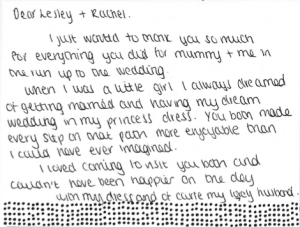 Dear Lesley + Rachel.
I just wanted to thank you so much
for everything you did for mummy + me in
the run up to the wedding.
When I was a little girl I always dreamed
of getting married and having my dream
wedding in my princess dress. You both made
every step on that path more enjoyable than
I could have ever imagined.
I loved coming to visit you both and
couldn't have been happier on the day
with my dress and of curse my lovely husband.